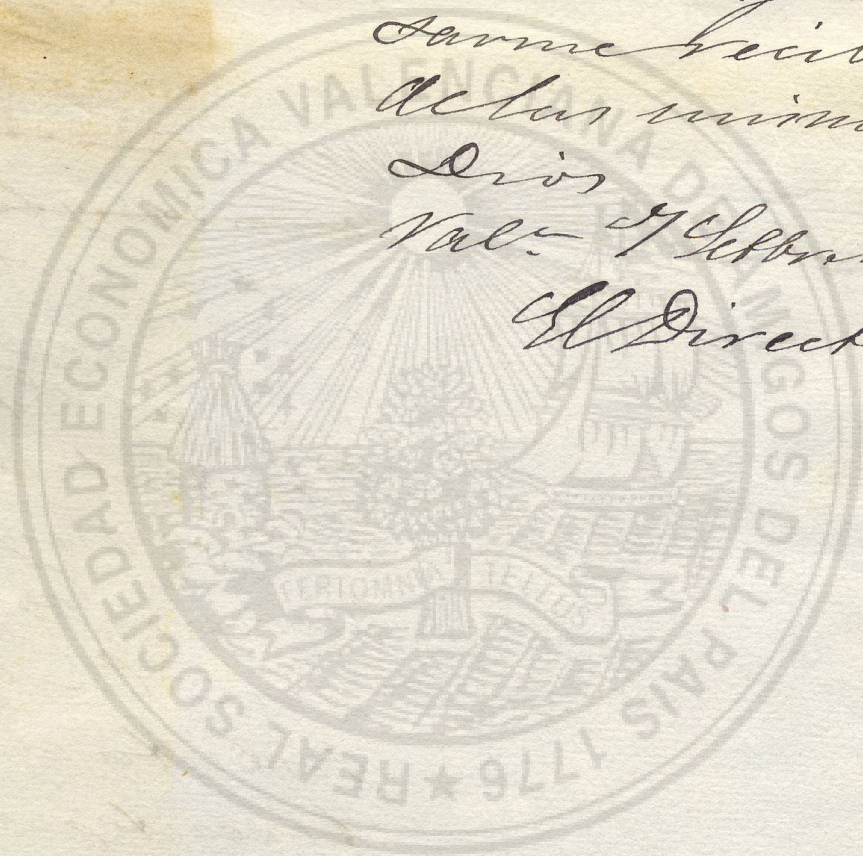 sarme recib
de las mism
Dios
Valª 7 Setbre
El Direct
REAL SOCIEDAD ECONOMICA VALENCIANA DE AMIGOS DEL PAIS 1776 ★
FERT OMNIA TELLUS